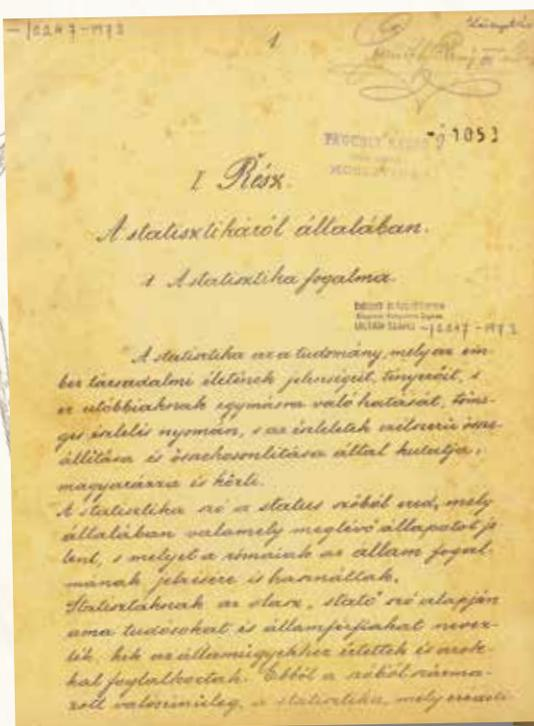 -10247-1973
1
-1053
I Rész.
A statisztikáról általában.
1 A statisztika fogalma.
LELTÁRI SZÁMA -10247-1973
A statisztika az a tudomány, mely az em-
ber társadalmi életének jelenségeit, tényezőit, s
ez utóbbiaknak egymásra való hatását, töme-
ges észlelés nyomán, s az észleletek célszerű össze-
állítása és összehasonlítása által kutatja,
magyarázza és közli.
A statisztika szó a status szóból ered, mely
általában valamely meglévő állapotot je-
lent, s melyet a rómaiak az állam fogal-
mának jelzésére is használtak.
Statistáknak az olasz "stato" szó alapján
ama tudósokat és államférfiakat nevez-
ték, kik az államügyekhez értettek és azok-
kal foglalkoztak. Ebből a szóból szárma-
zott valószínűleg, a statisztika, mely eredeti